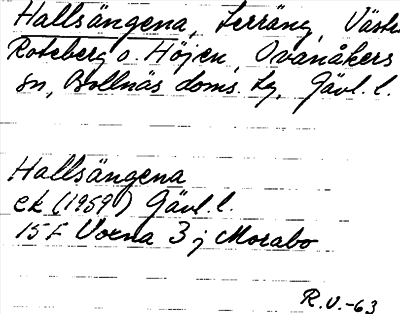 Hallsängena, Terräng, Väster
Roteberg o. Höjen, Ovanåkers
sn, Bollnäs doms. Lg, Gävl. l.
Hallsängena
ek (1959) Gävl. l.
15F Voxna 3 j Morabo
R.V.-63